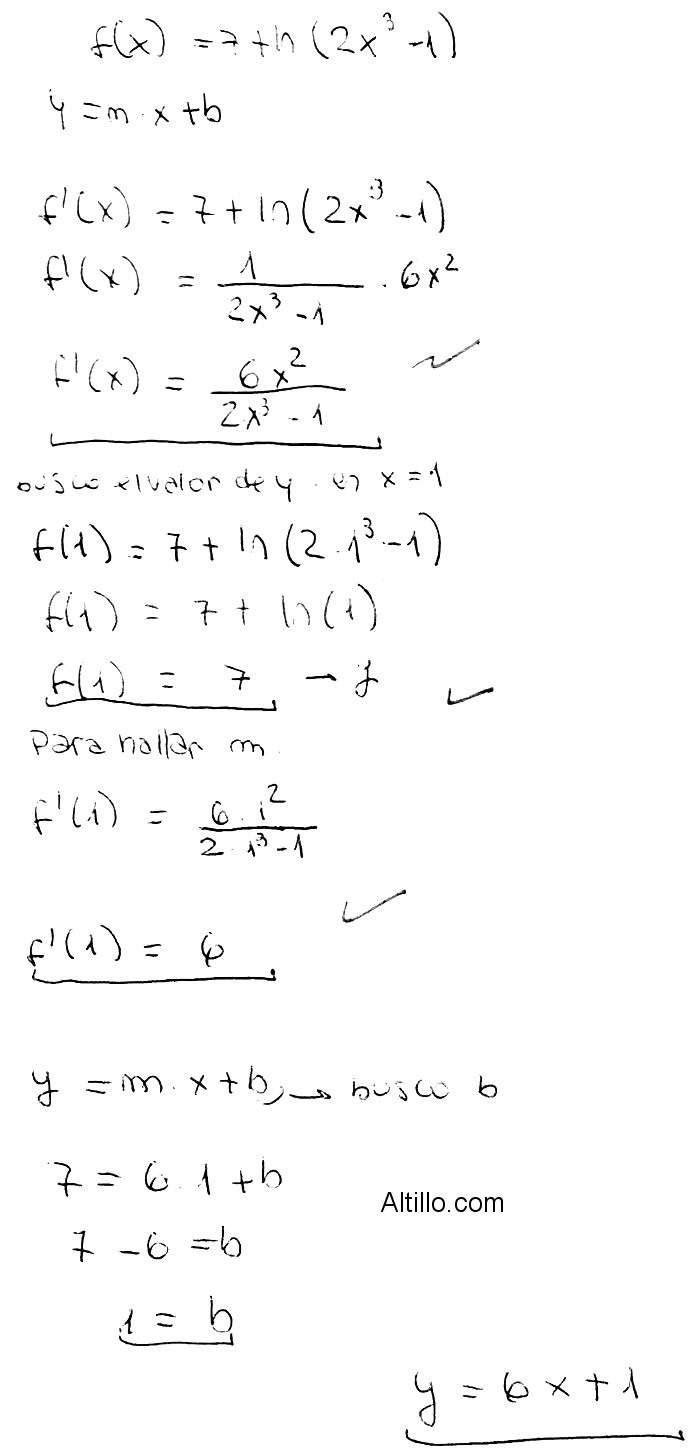 f(x) = 7 + ln (2x³ - 1)
y = m · x + b
f'(x) = 7 + ln (2x³ - 1)
f'(x) = 1 / (2x³ - 1) · 6x²
f'(x) = 6x² / (2x³ - 1)
busco el valor de y en x = 1
f(1) = 7 + ln (2 · 1³ - 1)
f(1) = 7 + ln (1)
f(1) = 7 → y
Para hallar m
f'(1) = 6 · 1² / (2 · 1³ - 1)
f'(1) = 6
y = m · x + b → busco b
7 = 6 · 1 + b
Altillo.com
7 - 6 = b
1 = b
y = 6x + 1